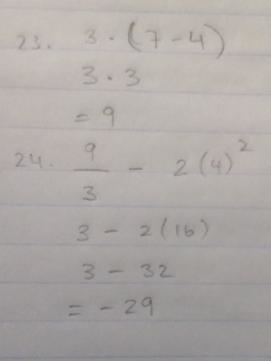 23. 3 · (7 - 4)
3 · 3
= 9
24. 9/3 - 2(4)²
3 - 2(16)
3 - 32
= - 29